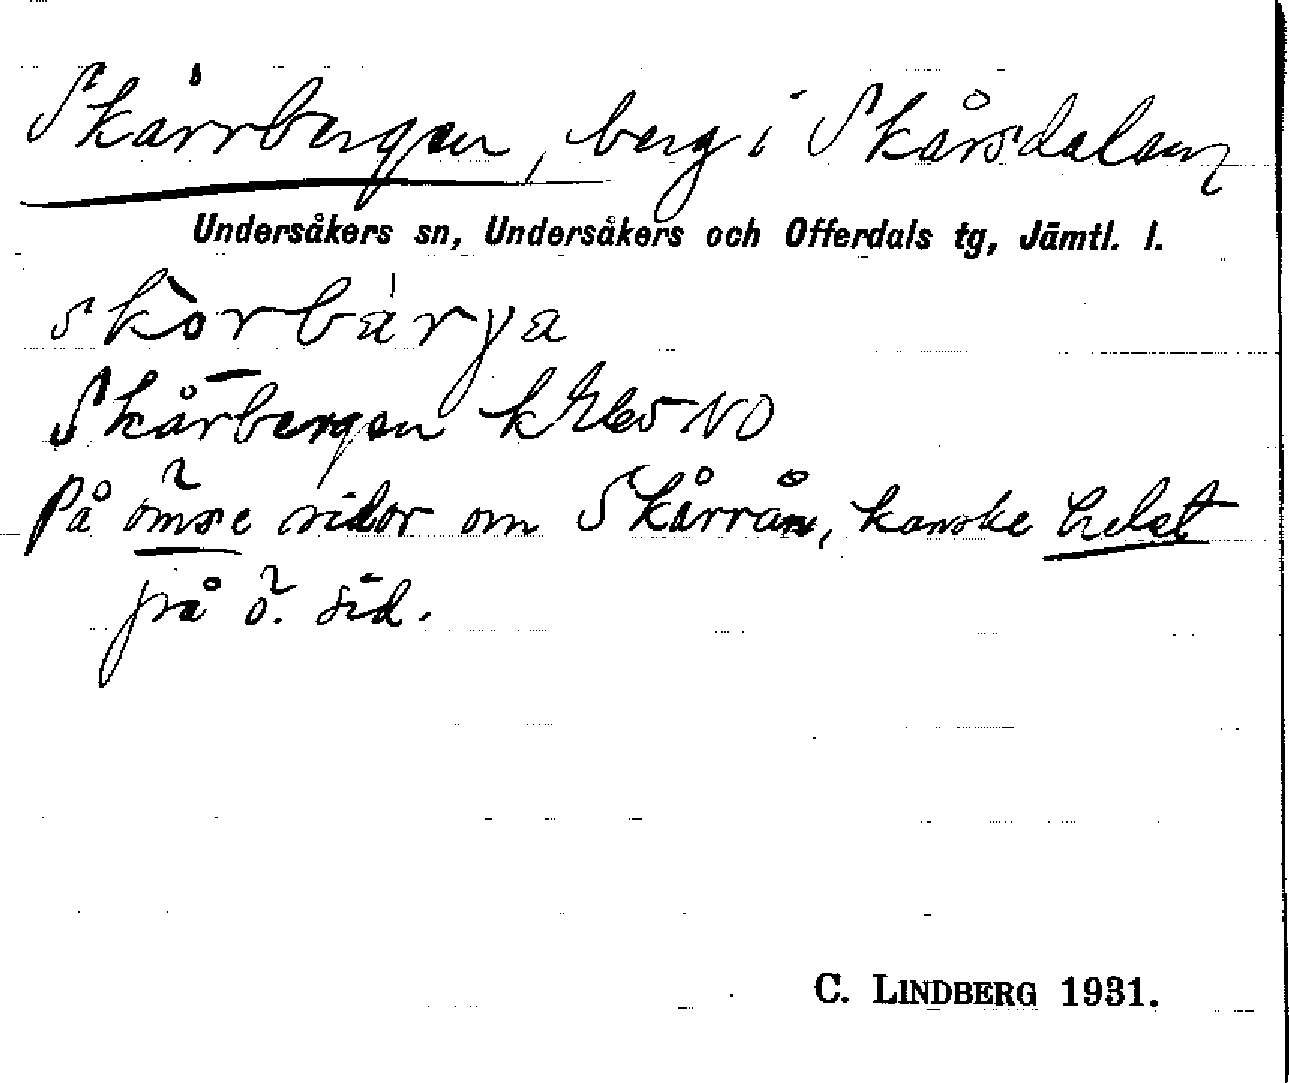 Skårrbergen, berg i Skårsdalen
Undersåkers sn, Undersåkers och Offerdals tg, Jämtl. l.
skòrbárya
Skårbergen NO
På ömse sidor om Skårrån, kanske helst
på ö. sid.
C. LINDBERG 1931.